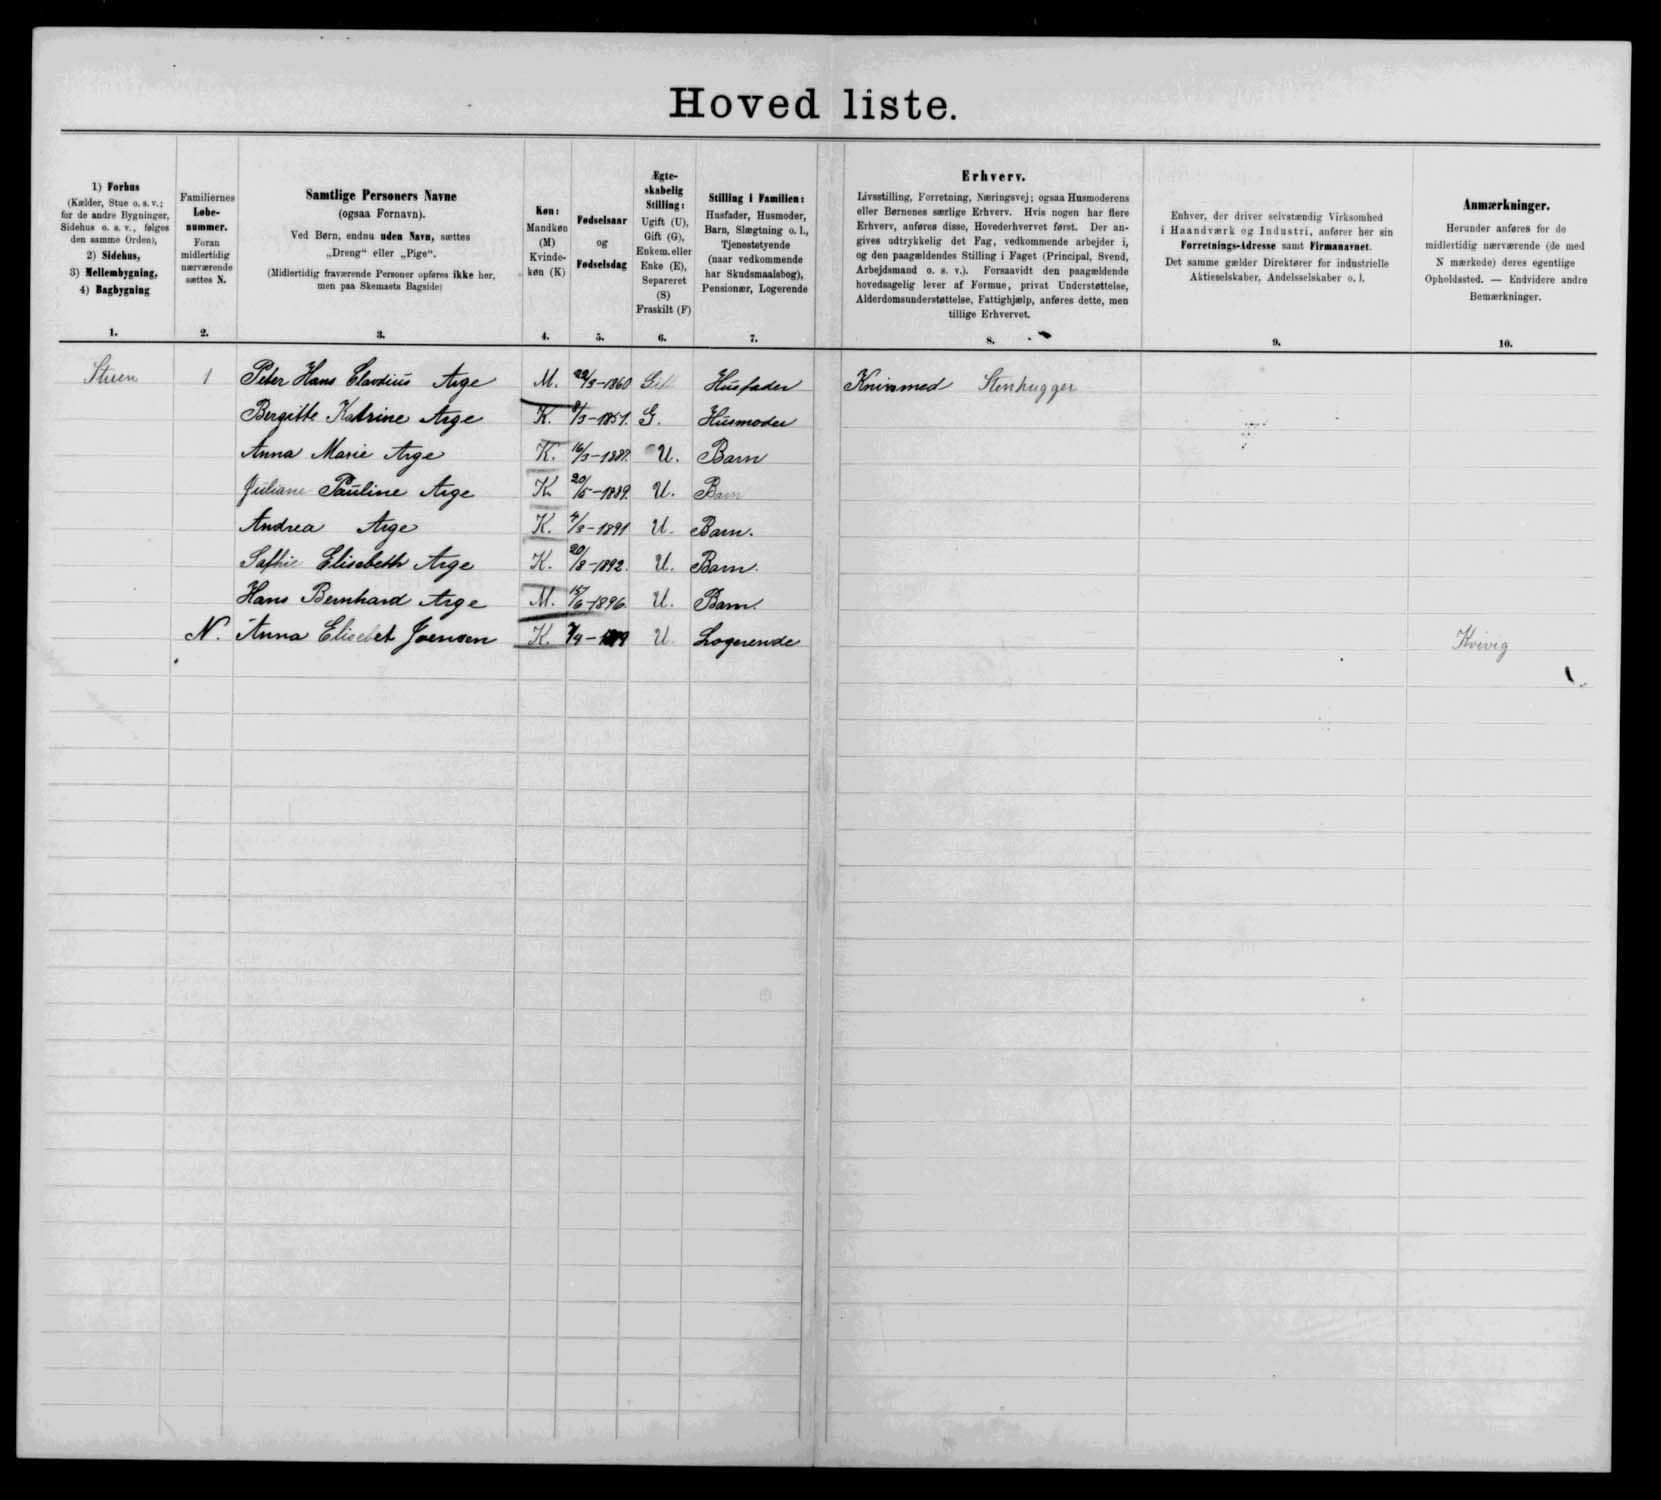 Hoved liste.
1) Forhus
(Kælder, Stue o. s. v.;
for de andre Bygninger,
Sidehus o. s. v., følges
den samme Orden),
2) Sidehus,
3) Mellembygning,
4) Bagbygning
1.
Familiernes
Løbe-
nummer.
Foran
midlertidig
nærværende
sættes N.
2.
Samtlige Personers Navne
(ogsaa Fornavn).
Ved Børn, endnu uden Navn, sættes
„Dreng“ eller „Pige“.
(Midlertidig fraværende Personer opføres ikke her,
men paa Skemaets Bagside)
3.
Køn:
Mandkøn
(M)
Kvinde-
køn (K)
4.
Fødselsaar
og
Fødselsdag
5.
Ægte-
skabelig
Stilling:
Ugift (U),
Gift (G),
Enkem. eller
Enke (E),
Separeret
(S)
Fraskilt (F)
6.
Stilling i Familien:
Husfader, Husmoder,
Barn, Slægtning o. l.,
Tjenestetyende
(naar vedkommende
har Skudsmaalsbog),
Pensionær, Logerende
7.
Erhverv.
Livsstilling, Forretning, Næringsvej; ogsaa Husmoderens
eller Børnenes særlige Erhverv. Hvis nogen har flere
Erhverv, anføres disse, Hovederhvervet først. Der an-
gives udtrykkelig det Fag, vedkommende arbejder i,
og den paagældendes Stilling i Faget (Principal, Svend,
Arbejdsmand o. s. v.). Forsaavidt den paagældende
hovedsagelig lever af Formue, privat Understøttelse,
Alderdomsunderstøttelse, Fattighjælp, anføres dette, men
tillige Erhvervet.
8.
Enhver, der driver selvstændig Virksomhed
i Haandværk og Industri, anfører her sin
Forretnings-Adresse samt Firmanavnet.
Det samme gælder Direktører for industrielle
Aktieselskaber, Andelsselskaber o. l.
9.
Anmærkninger.
Herunder anføres for de
midlertidig nærværende (de med
N mærkede) deres egentlige
Opholdssted. — Endvidere andre
Bemærkninger.
10.
Stuen 1 Peter Hans Clavdius Arge M. 22/3-1860 Husfader Stenhugger
Bergitte Katrine Arge K. 8/3-1857. G. Husmoder
Anna Marie Arge K. 16/3-1887. U. Barn
Juliane Pauline Arge K 20/5-1889. U. Barn
Andrea Arge K. 4/3-1891 U. Barn.
Safhie Elisabeth Arge K. 20/8-1892. U. Barn.
Hans Bernhard Arge M. 15/6-1896. U. Barn.
N. Anna Elisebet Joensen K. U. Logerende Kvivig